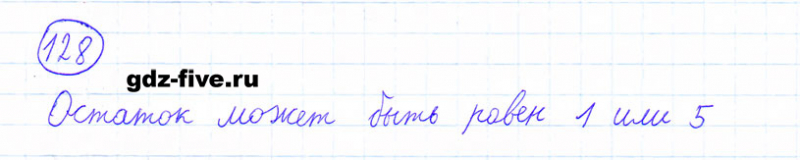 128
gdz-five.ru
Остаток может быть равен 1 или 5